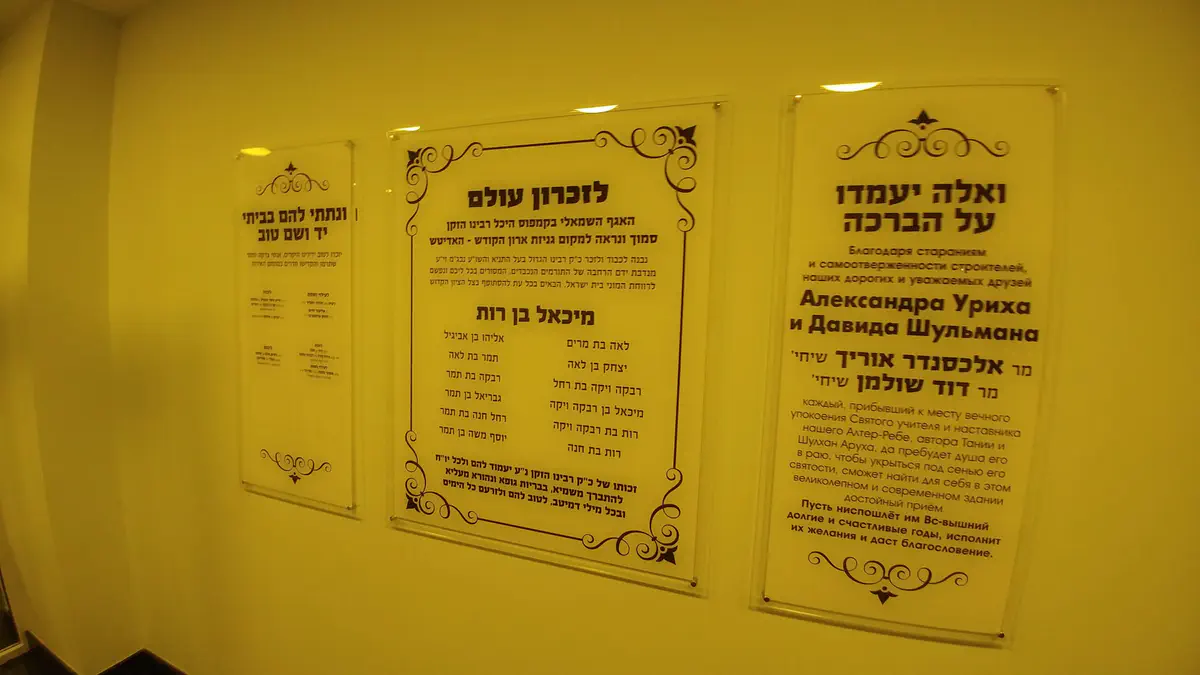 ונתתי להם בביתי
יד ושם טוב
לזכרון עולם
האגף השמאלי בקמפוס היכל רבינו הזקן
סמוך ונראה למקום גניזת ארון הקודש - האדיטש
נבנה לכבוד ולזכר כ"ק רבינו הגדול בעל התניא והשו"ע נבג"מ זי"ע
מנדבת ידם הרחבה של התורמים הנכבדים, המסורים בכל ליבם ונפשם
לרווחת המוני בית ישראל, הבאים בכל עת להסתופף בצל הציון הקדוש
מיכאל בן רות
לאה בת מרים
יצחק בן לאה
רבקה ויקה בת רחל
מיכאל בן רבקה ויקה
רות בת רבקה ויקה
רות בת חנה
אליהו בן אביגיל
תמר בת לאה
רבקה בת תמר
גבריאל בן תמר
רחל חנה בת תמר
יוסף משה בן תמר
זכותו של כ"ק רבינו הזקן נ"ע יעמוד להם ולכל יו"ח
להתברך משמיא, בבריות גופא ונהורא מעליא
ובכל מילי דמיטב, לטוב להם ולזרעם כל הימים
ואלה יעמדו
על הברכה
Благодаря стараниям
и самоотверженности строителей,
наших дорогих и уважаемых друзей
Александра Уриха
и Давида Шульмана
מר אלכסנדר אוריך שיחי'
מר דוד שולמן שיחי'
каждый, прибывший к месту вечного
упокоения Святого учителя и наставника
нашего Алтер-Ребе, автора Тании и
Шулхан Аруха, да пребудет душа его
в раю, чтобы укрыться под сенью его
святости, сможет найти для себя в этом
великолепном и современном здании
достойный приём
Пусть ниспошлёт им Вс-вышний
долгие и счастливые годы, исполнит
их желания и даст благословение.